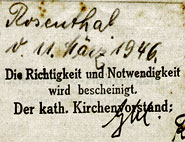 Rosenthal
d. 11. März 1946.
Die Richtigkeit und Notwendigkeit
wird bescheinigt.
Der kath. Kirchenvorstand: